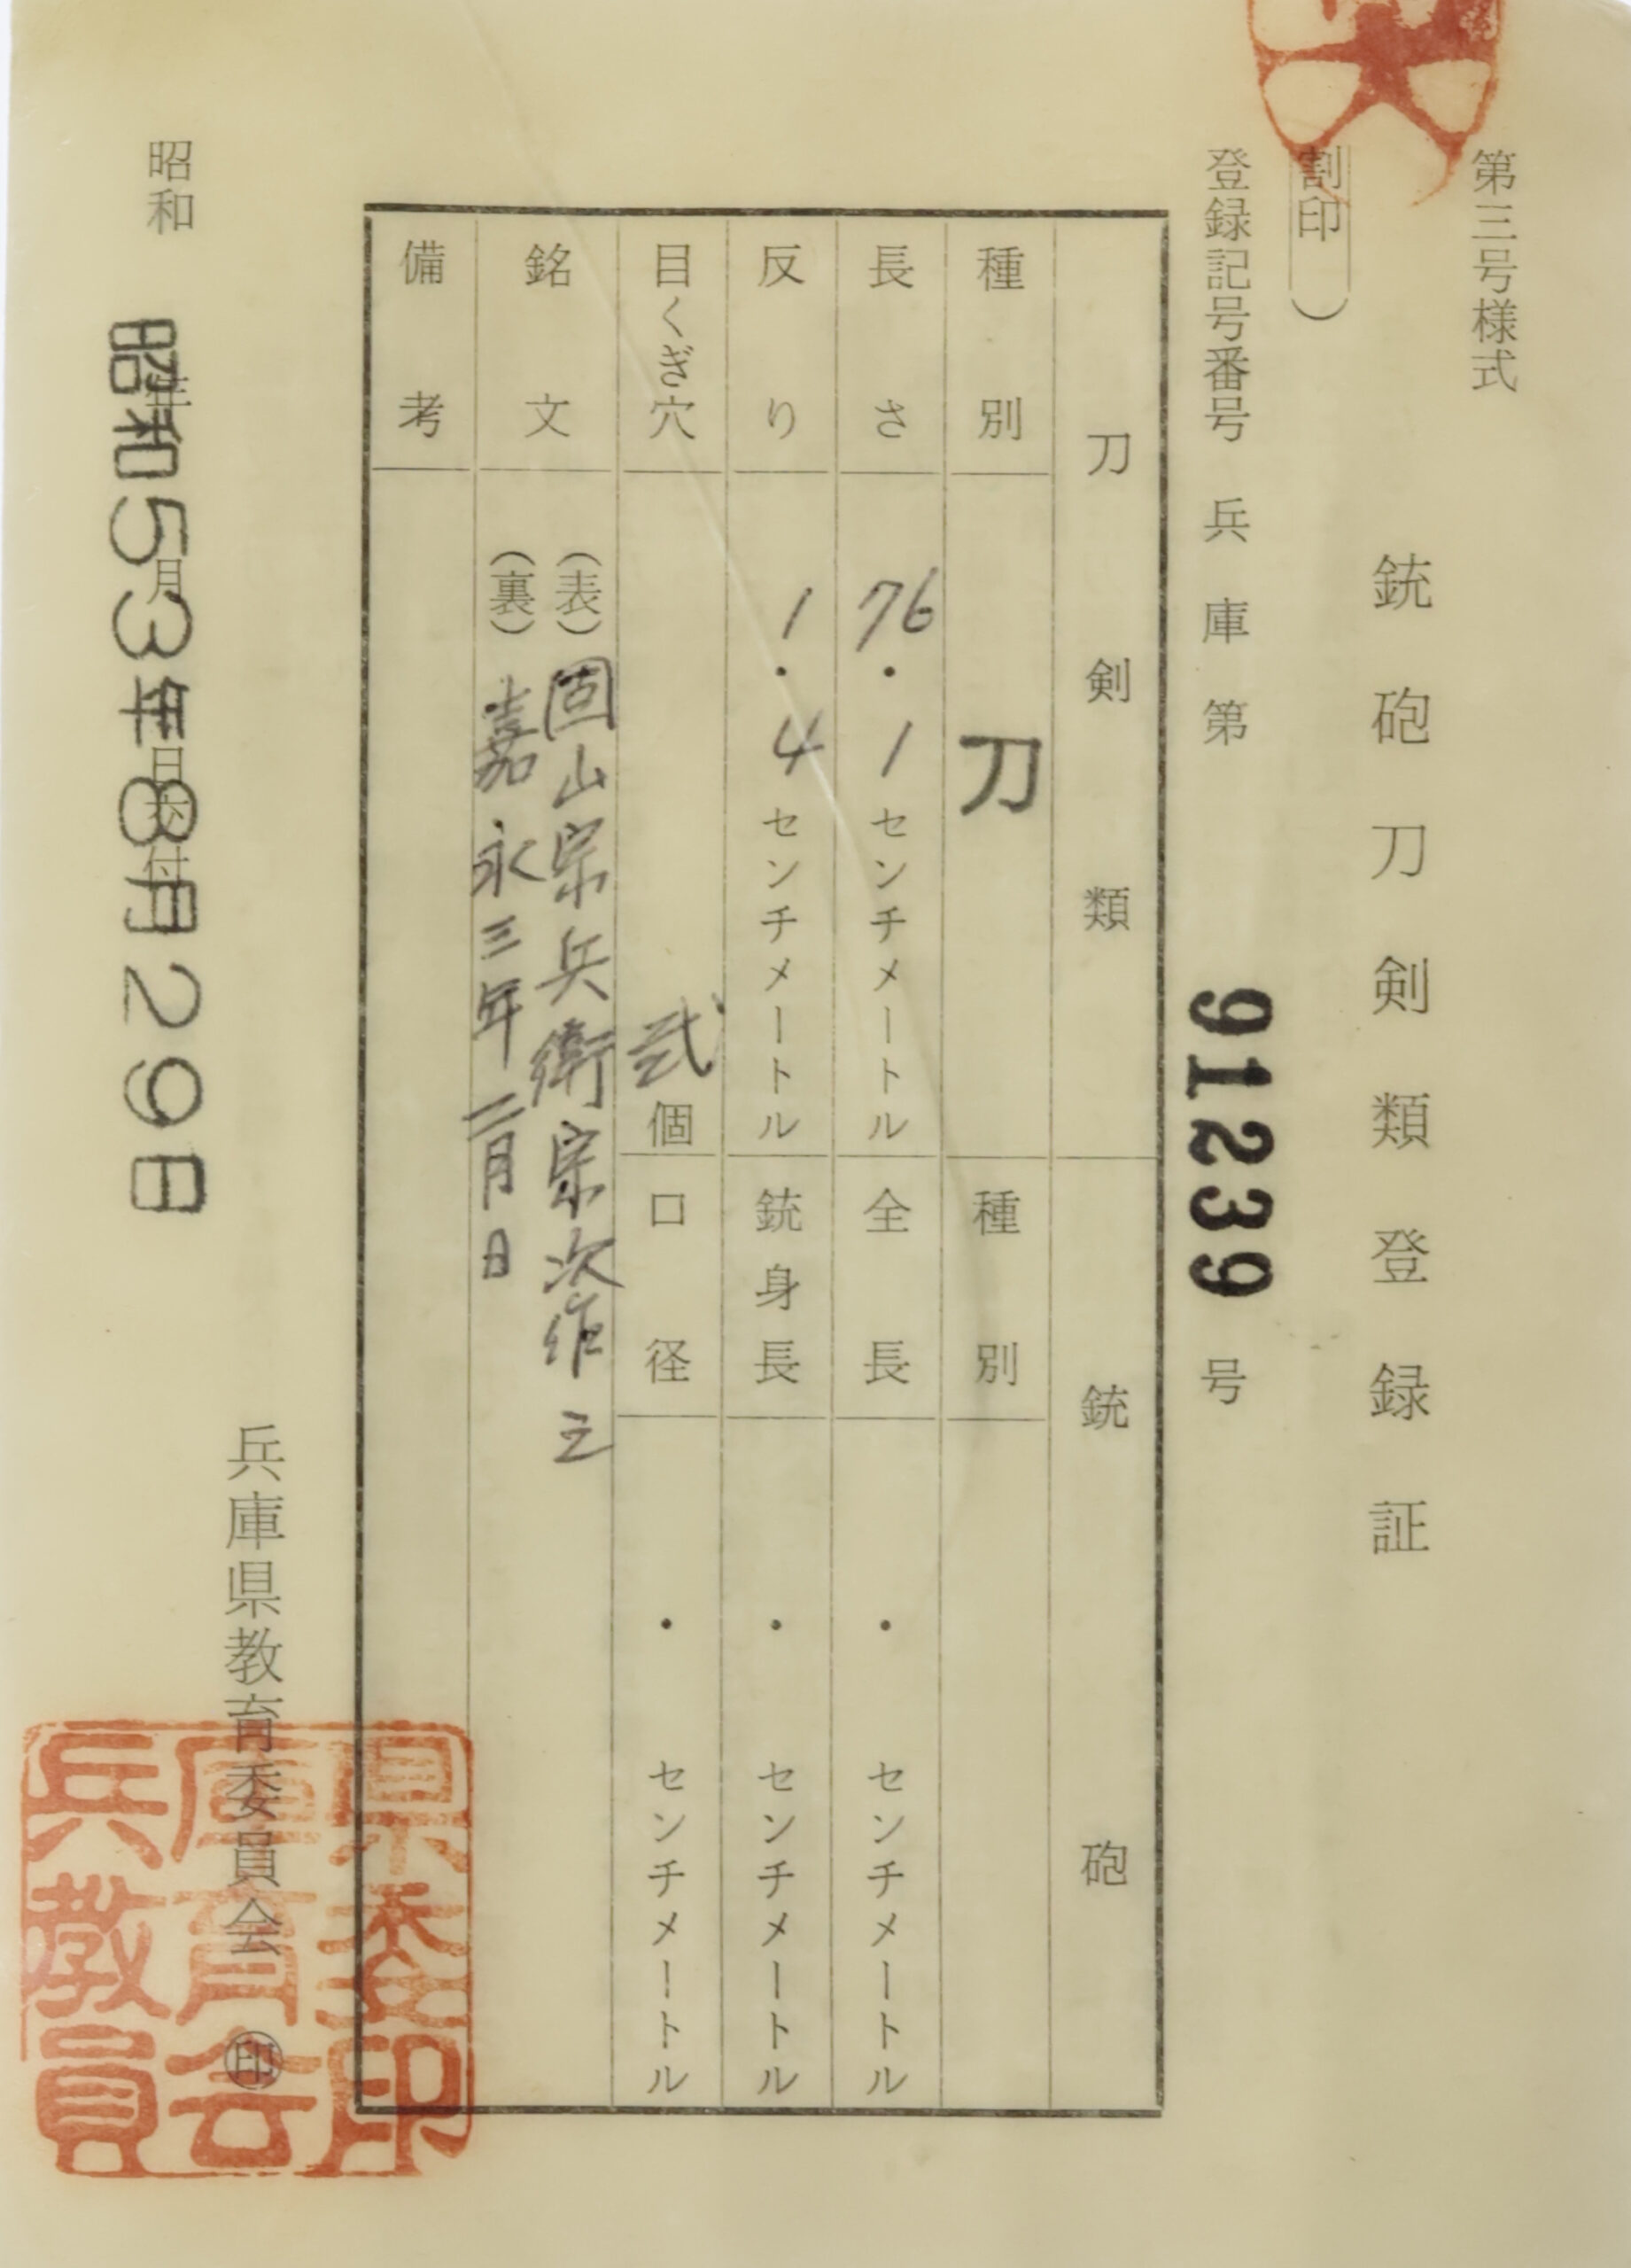 第三号様式
銃砲刀剣類登録証
割印）
登録記号番号 兵庫第 91239 号
刀剣類
種別 刀
長さ 76・1センチメートル
反り 1・4センチメートル
目くぎ穴 弐個
銃砲
種別
全長 ・ センチメートル
銃身長 ・ センチメートル
口径 ・ センチメートル
銘文
（表）固山宗兵衛宗次作之
（裏）嘉永三年二月日
備考
昭和 年 月 日交付
昭和53年8月29日
兵庫県教育委員会 ㊞
兵庫県教育委員会印